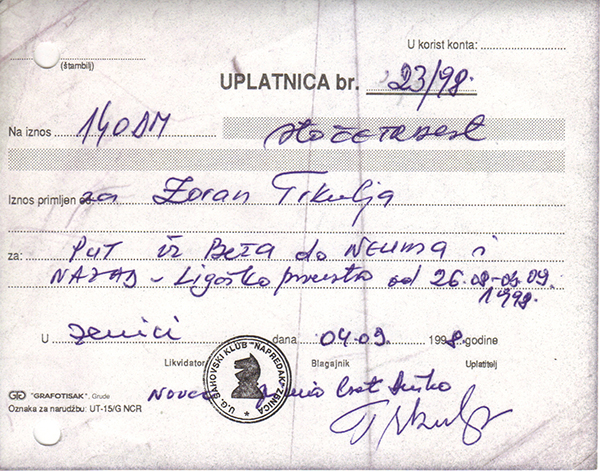 U korist konta:
(štambilj)
UPLATNICA br. 23/98.
Na iznos 140 DM stočetrdest
Iznos primljen od za Zoran Trkulja
za: Put iz Beča do NEUMA i
NAZAD - Ligaško prvenstvo od 26.08-04.09.
1998.
U Zenici dana 04.09. 1998. godine
Likvidator Blagajnik Uplatitelj
U.G. ŠAHOVSKI KLUB "NAPREDAK" ZENICA
Novac
Trkulja
"GRAFOTISAK", Grude
Oznaka za narudžbu: UT-15/G NCR